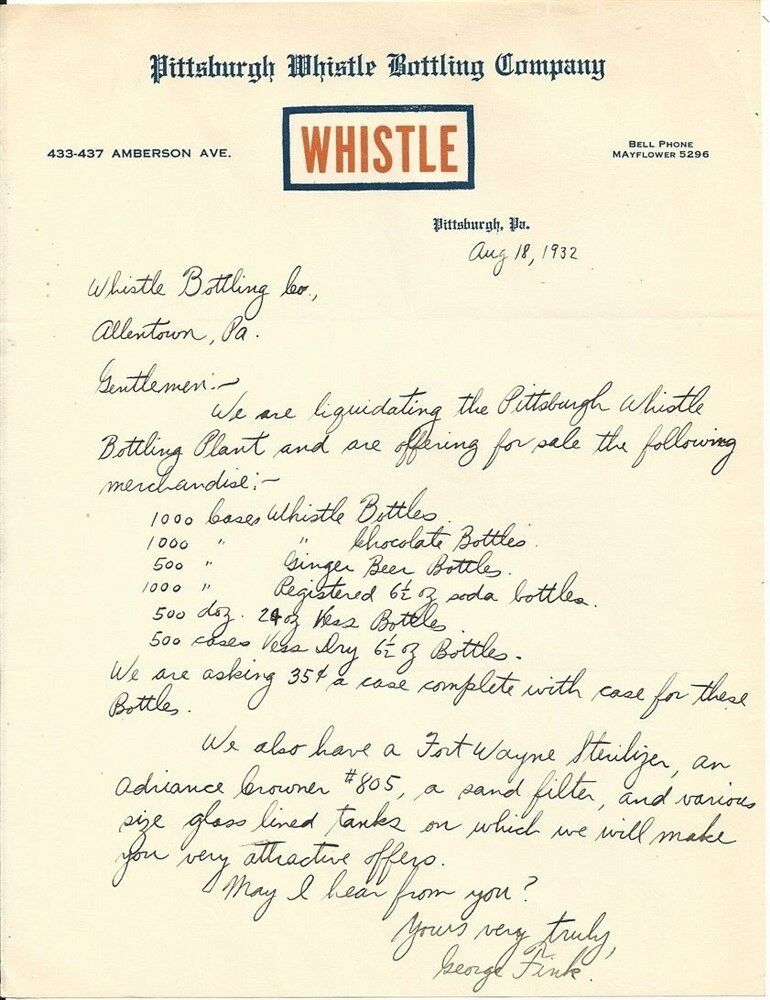 Pittsburgh Whistle Bottling Company
WHISTLE
433-437 AMBERSON AVE.
BELL PHONE
MAYFLOWER 5296
Pittsburgh, Pa.
Aug 18, 1932
Whistle Bottling Co.,
Allentown, Pa.
Gentlemen:-
We are liquidating the Pittsburgh Whistle
Bottling Plant and are offering for sale the following
merchandise:-
1000 Cases Whistle Bottles
1000 " " Chocolate Bottles.
500 " Ginger Beer Bottles.
1000 " Registered 6½ oz soda bottles.
500 doz. 24 oz Vess Bottles
500 cases Vess Dry 6½ oz Bottles.
We are asking 35¢ a case complete with case for these
Bottles.
We also have a Fort Wayne Sterilizer, an
Adriance Crowner #805, a sand filter, and various
size glass lined tanks on which we will make
you very attractive offers.
May I hear from you?
Yours very truly,
George Fink.